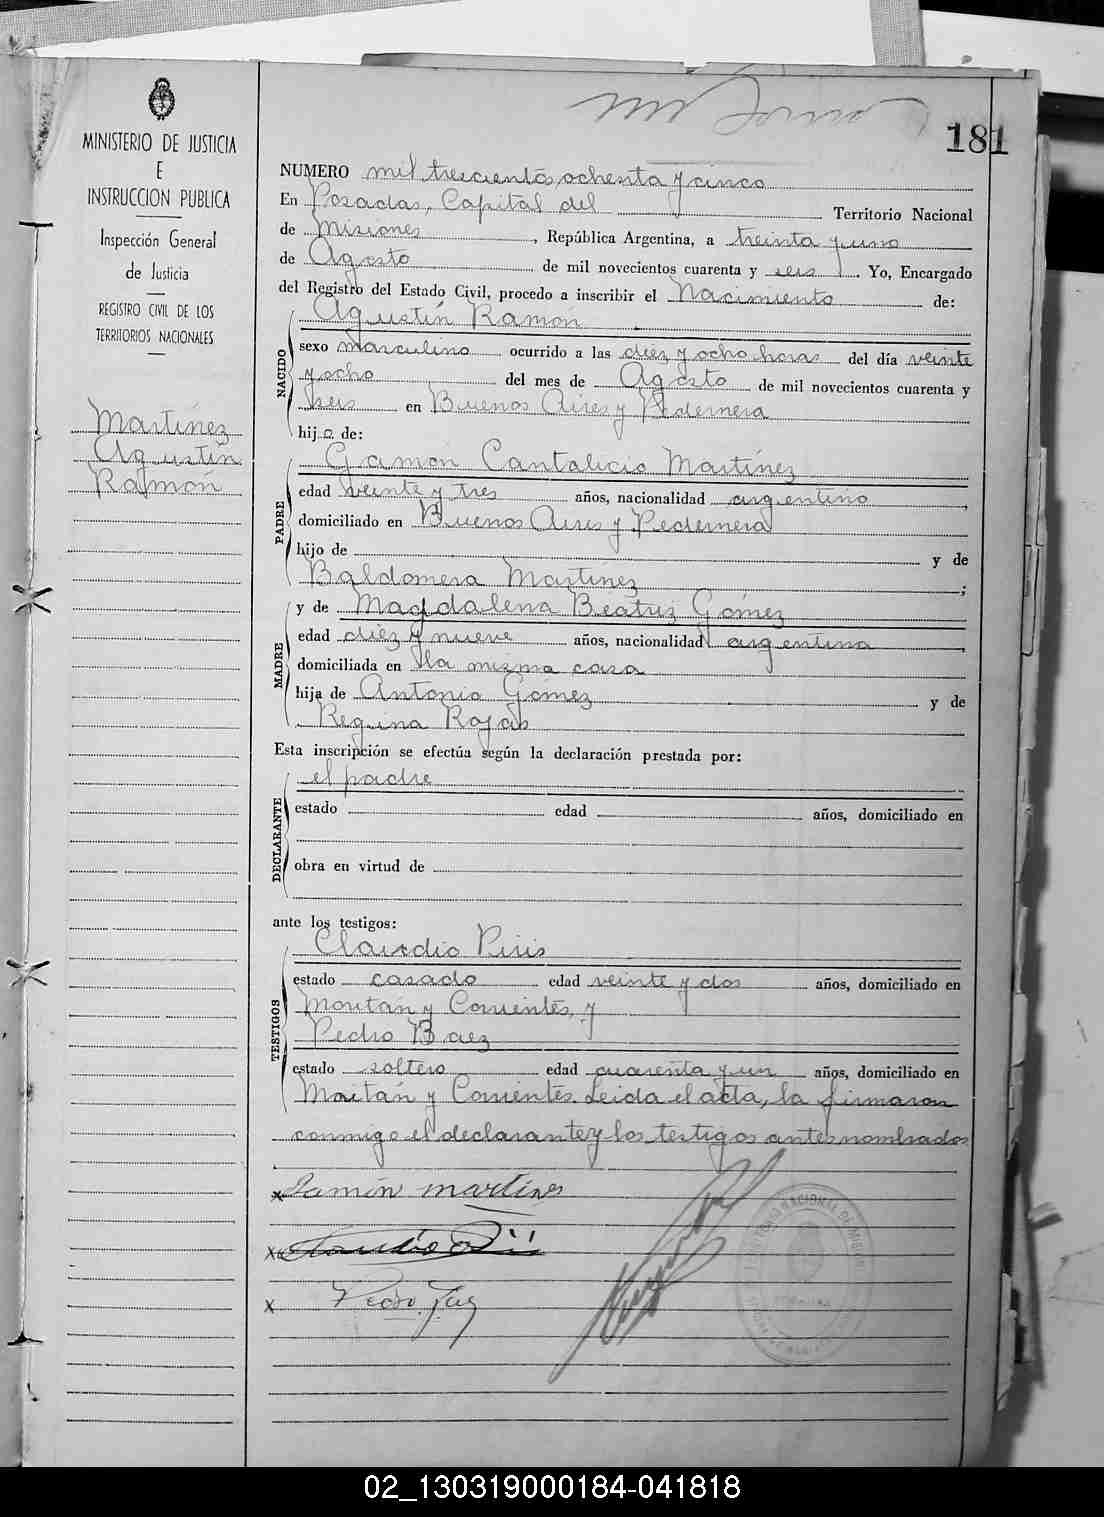 181
MINISTERIO DE JUSTICIA
E
INSTRUCCION PUBLICA
Inspección General
de Justicia
REGISTRO CIVIL DE LOS
TERRITORIOS NACIONALES
Martínez
Agustín
Ramón
NUMERO mil trescientos ochenta y cinco
En Posadas, Capital del Territorio Nacional
de Misiones, República Argentina, a treinta y uno
de Agosto de mil novecientos cuarenta y seis. Yo, Encargado
del Registro del Estado Civil, procedo a inscribir el Nacimiento de:
NACIDO
Agustín Ramón
sexo masculino ocurrido a las diez y ocho horas del día veinte
y ocho del mes de Agosto de mil novecientos cuarenta y
seis en Buenos Aires y Pedernera
hijo de:
PADRE
Gamón Cantalicio Martínez
edad veinte y tres años, nacionalidad argentino,
domiciliado en Buenos Aires y Pedernera
hijo de y de
Baldomera Martínez;
MADRE
y de Magdalena Beatriz Gómez
edad diez y nueve años, nacionalidad argentina,
domiciliada en la misma casa
hija de Antonio Gomez y de
Regina Rojas
Esta inscripción se efectúa según la declaración prestada por:
DECLARANTE
el padre
estado edad años, domiciliado en
obra en virtud de
ante los testigos:
TESTIGOS
Claudio Piris
estado casado edad veinte y dos años, domiciliado en
y Corrientes, y
Pedro Baez
estado soltero edad cuarenta y un años, domiciliado en
y Corrientes. Leida el acta, la firmaron
conmigo el declarante y los testigos antes nombrados
x Ramón Martínes
x Claudio Piris
x Pedro
02_130319000184-041818